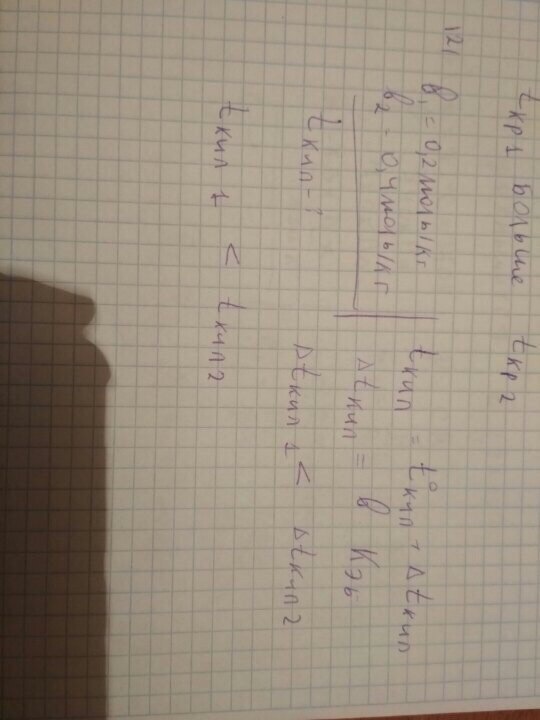 tкр1 больше tкр2
121
в₁ = 0,2 моль/кг
в₂ - 0,4 моль/кг
tкип - ?
tкип = t°кип + Δtкип
Δtкип = в Кэб
Δtкип 1 < Δtкип 2
tкип 1 < tкип 2